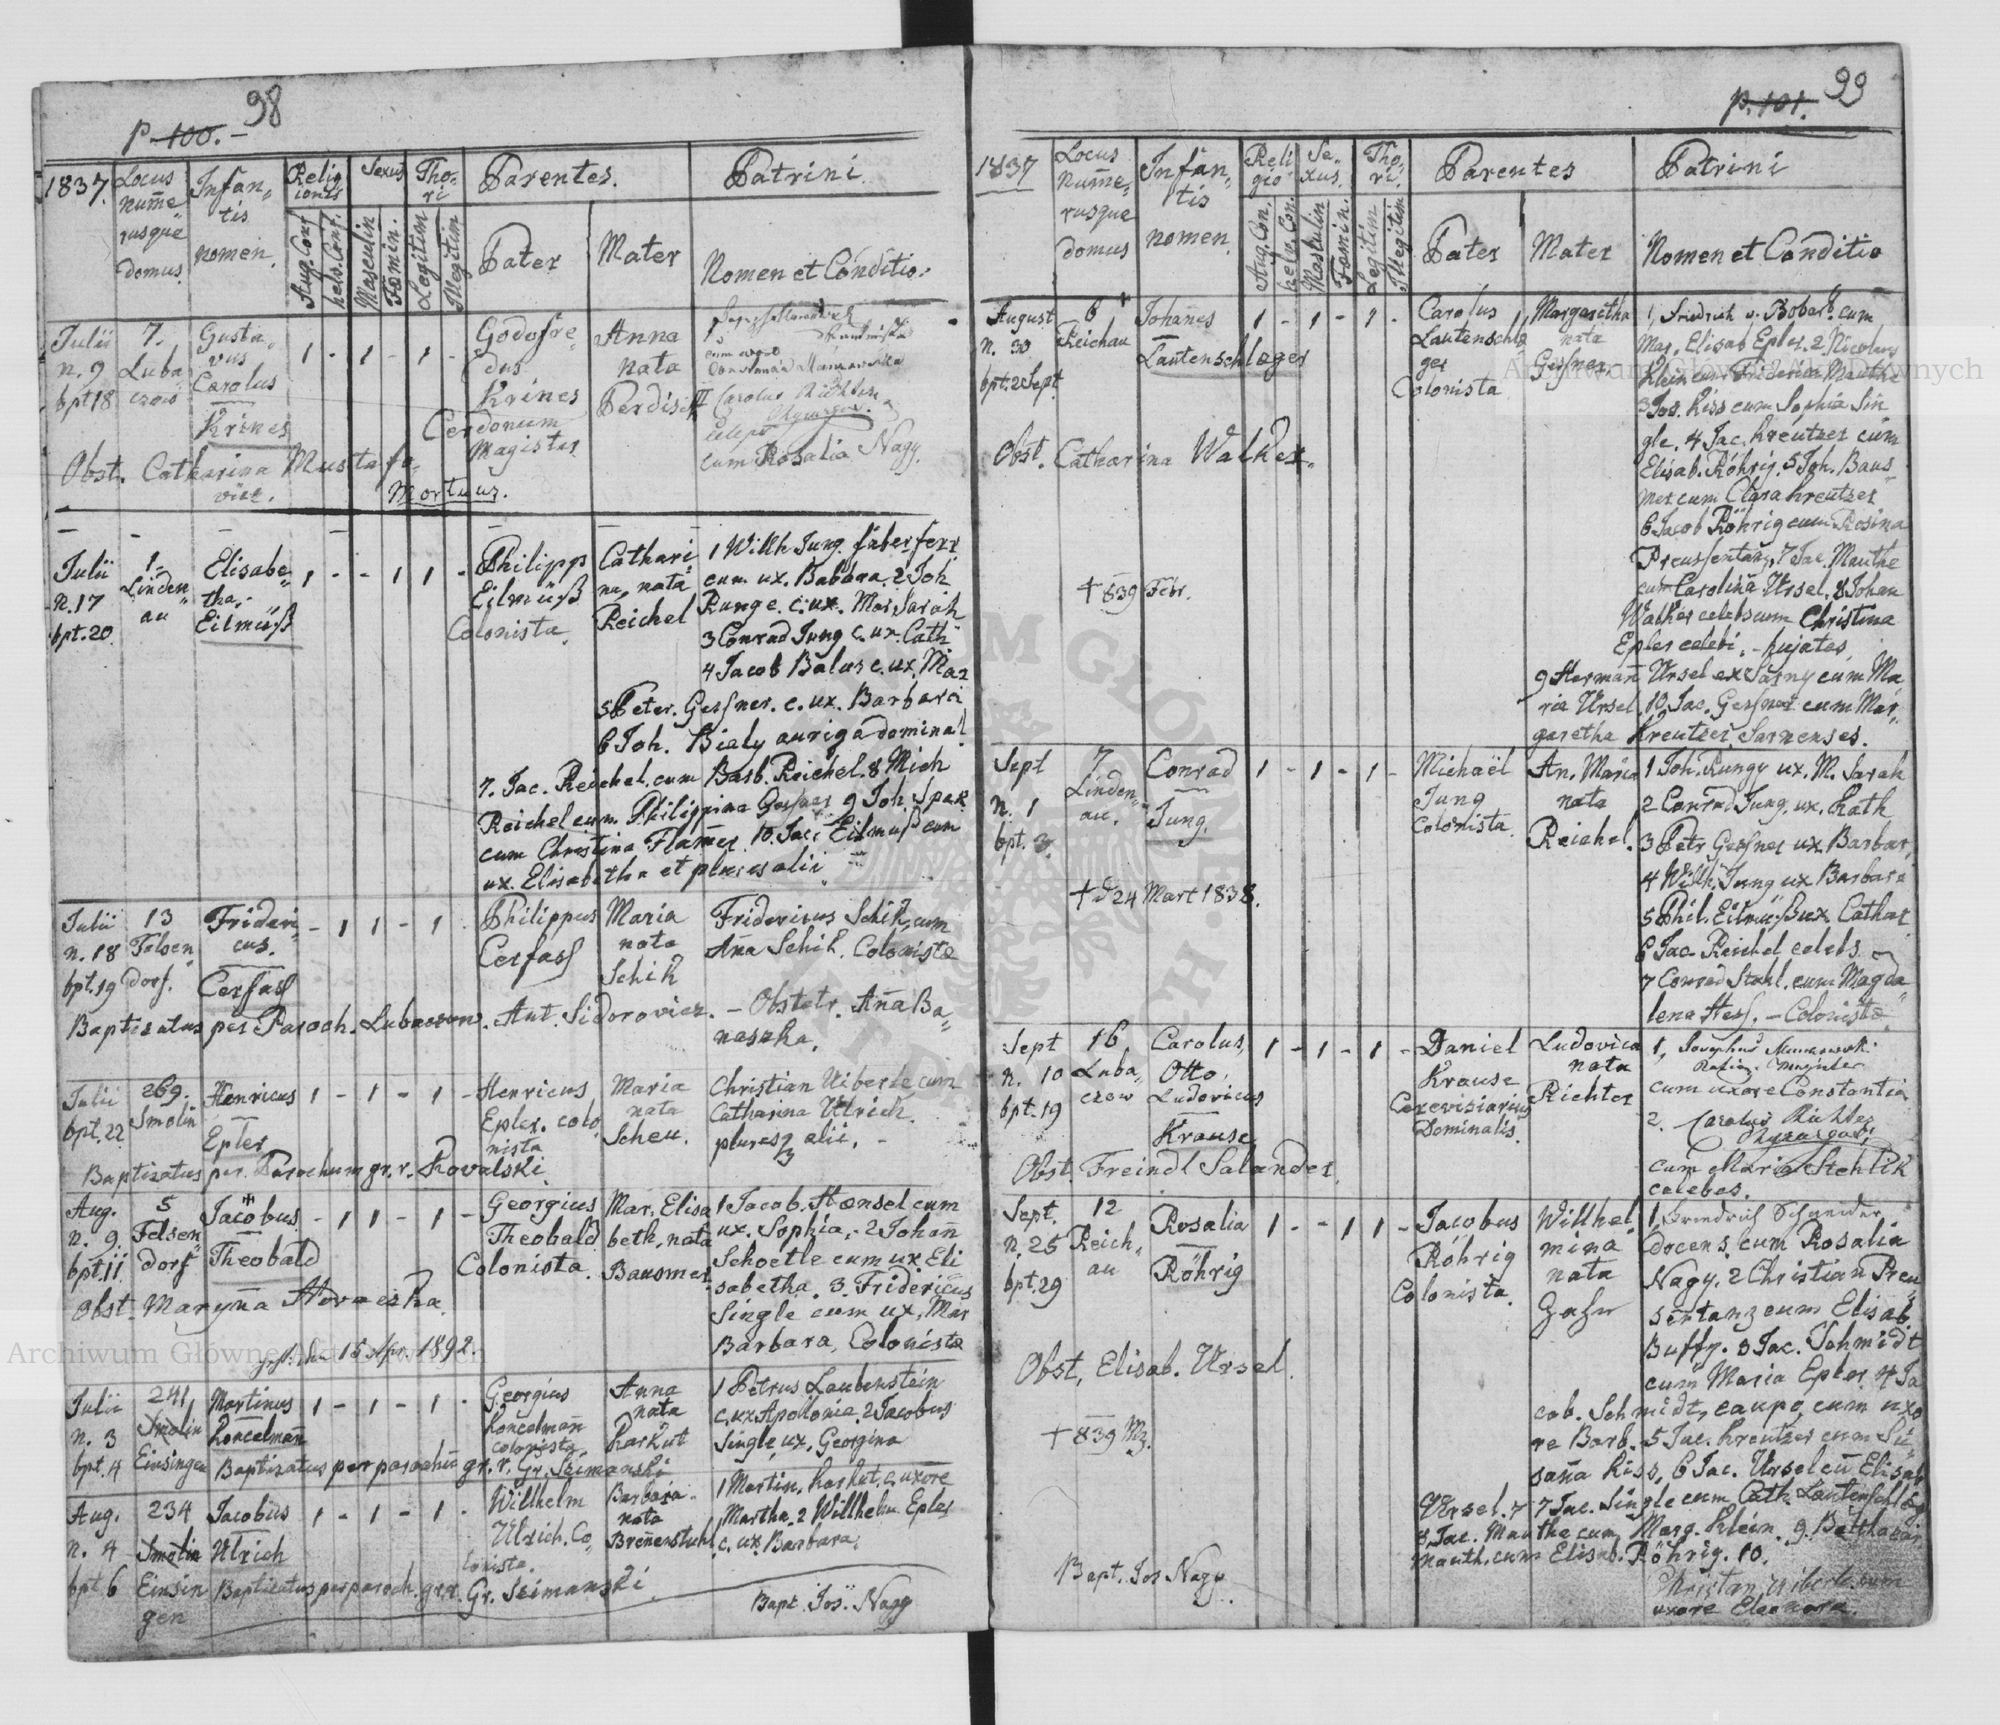 98
p. 100. -
1837. Locus Nume- rusque domus. Infan- tis nomen. Religiones Sexus Tho- ri Parentes. Patrini.
Aug. Conf. helv. Conf. Masculin Fœmin. Legitim Illegitim Pater Mater Nomen et Conditio.
Julii 7. Gusta- 1 - 1 - 1 - Godofre- Anna
n. 9 Luba- vus dus nata
bpt 18 czow Carolus Krines II Carolus Richter
Krines Cerdonum
Magister cum Rosalia Nagy.
Obst. Catharina Mustafo-
vicz. Mortuus.
Julii 1. Elisabe- 1 - - 1 1 - Philipp Cathari- 1 Wilh Jung faber ferr
n. 17 Linden- tha. Eilmüß na, nata cum ux. Babara. 2 Joh
bpt. 20 au Eilmüß Colonista. Reichel Runge. c. ux. Mar. Sarah
3 Conrad Jung c. ux. Cath
4 Jacob Balus c. ux. Mar
5 Peter. Gessner. c. ux. Barbara
6 Joh. Biely auriga dominal.
7. Jac. Reichel. cum Barb. Reichel. 8 Mich
Reichel cum Philippina Gessner 9 Joh. Spek
cum Christina Flamer. 10 Jac. Eilmuß cum
ux. Elisabetha et plures alii.
Julii 13 Frideri- - 1 1 - 1 - Philippus Maria Fridericus Schik, cum
n. 18 Felsen- cus. Cerfass nata Anna Schik. Colonistæ
bpt. 19 dorf. Cerfass Schik
Baptizatus per Paroch. Lubaczow. Ant. Sidorovicz. - Obstetr. Anna Ba-
naszka.
Julii 269. Henricus 1 - 1 - 1 - Henricus Maria Christian Uiberle cum
bpt. 22 Smolin Epler Epler. colo- nata Catharina Ulrich.
nista Scheu. plures alii. -
Baptizatus per. Parochum gr. r. Kovalski.
Aug. 5 Jacobus - 1 1 - 1 - Georgius Mar. Elisa 1 Jacob. Hænsel cum
n. 9 Felsen- Theobald Theobald beth, nata ux. Sophia. - 2 Johann
bpt. 11. dorf Colonista. Bausmer. Schoetle cum ux. Eli
Obst. Maryna Hovaczka. sabetha. 3. Fridericus
Single cum ux. Mar
gest. den 15 Apr. 1892. Barbara, Colonistæ
Julii 241, Martinus 1 - 1 - 1 - Georgius Anna 1 Petrus Laubenstein
n. 3 Smolin Koncelman Koncelman nata c. ux Apolonia. 2 Jacobus
bpt. 4 Einsingen colonista Karkut Single ux. Georgina
Baptizatus per parochũ gr. r. Gr. Szimanski
Aug. 234 Jacobus 1 - 1 - 1 - Willhelm Barbara 1 Martin. Karkut c. uxore
n. 4 Smolin Ulrich Ulrich. Co- nata Martha. 2 Willhelm Epler
bpt. 6 Einsin lonista. Brenenstuhl c. ux Barbara.
gen Baptizatus per paroch. gr. r. Gr. Szimanski.
Bapt. Jos. Nagy
p. 101. 99
1837 Locus Nume- rusque domus Infan- tis nomen. Reli gio Se- xus. Tho- ri. Parentes Patrini
Aug. Con. helv. Con. Maskulin Fœmin. Legitim Illegitim Pater Mater Nomen et Conditio
August 6 Johanes 1 - 1 - 1 - Carolus Margaretha 1, Friedrich v. Bobel. cum
n. 30 Reichau Lautenschlæger Lautenschlæ nata Mar. Elisab Epler. 2 Nicolaus
bpt. 2 Sept. ger Gessner Klein cum Friderica Mauthe
Colonista 3 Jos. Kiss cum Sophia Sin
gle. 4 Jac. Kreutzer cum
Obst. Catharina Walker. Elisab. Röhrig. 5 Joh. Baus-
mer cum Clara Kreutzer
6 Jacob Röhrig cum Rosina
† 839 Febr. Preussentanz, 7 Jac. Mauthe
cum Carolina Ursel. 8 Johan
Walker celebs cum Christina
Epler celebi. - hujates,
9 Herman Ursel ex Sarny cum Ma-
ria Ursel 10 Jac. Gessner cum Mar-
garetha Kreutzer. Sarnenses.
Sept 7 Conrad 1 - 1 - 1 - Michaël An. Maria 1 Joh. Rungy ux. M. Sarah
n. 1 Linden- Jung. Jung nata 2 Conrad Jung. ux. Kath
bpt. 3. au. Colonista. Reichel. 3 Petr Gessner ux. Barbar.
4 Wilh. Jung ux Barbara
† d 24 Mart 1838. 5 Phil. Eilmüß ux Cathar
6 Jac. Reichel celebs
7 Conrad Stahl. cum Magda
lena Hess. - Colonistæ.
Sept 16. Carolus, 1 - 1 - 1 - Daniel Ludovica 1,
n. 10 Luba- Otto, Krause nata
bpt. 19 czow Ludovicus Cerevisiarius Richter cum uxore Constantia
Krause Dominalis. 2. Carolus Richter
Obst. Freindl Salander. cum Maria Stehlik
celebes.
Sept. 12 Rosalia 1 - - 1 1 - Jacobus Willhel- 1, Friedrich Schneider
n. 25 Reich- Röhrig Röhrig mina docens, cum Rosalia
bpt. 29 au Colonista. nata Nagy. 2 Christian Preu
Zahn sentanz cum Elisab.
Buffy. 3 Jac. Schmidt
Obst, Elisab. Ursel. cum Maria Epler. 4 Ja
cob. Schmidt, caupo, cum uxo
† 839 Mz. re Barb. 5 Jac. Kreutzer cum Su-
sanna Kiss, 6 Jac. Ursel cũ Elisab
Ursel. 7 Jac. Single cum Cath. Lautenschläg.
8 Jac. Mauthe cum Marg. Klein. 9. Balthasar
Mauth. cum Elisab. Röhrig. 10.
Bapt. Jos Nagy. Christian Uiberle cum
uxore Eleonora.
Archiwum Główne Akt Dawnych